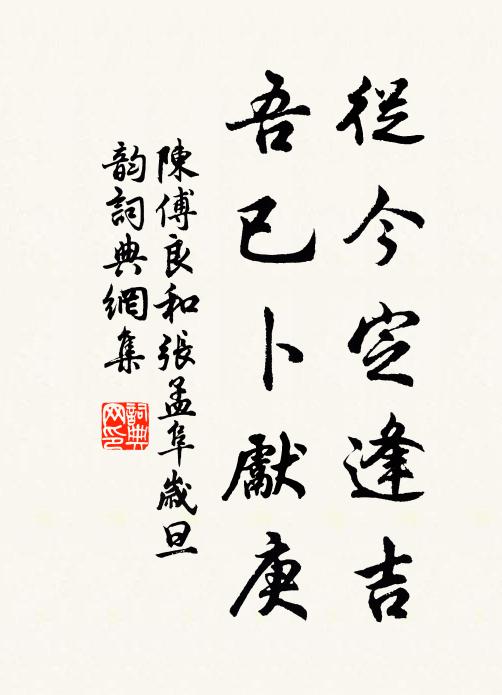 從今定逢吉
吾已卜獻庚
陳傅良和張孟阜歲旦
韵詞典網集
詞典
网印